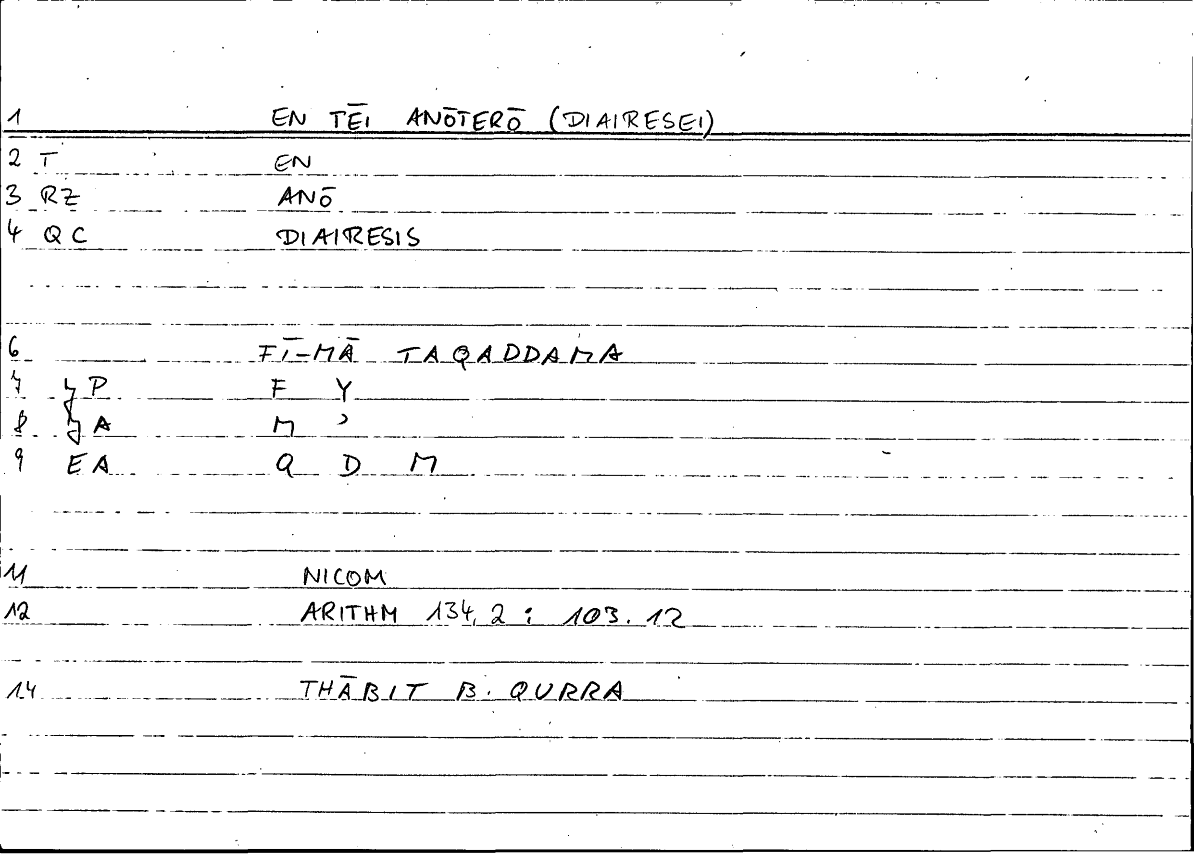 1 EN TĒI ANŌTERŌ (DIAIRESEI)
2 T EN
3 RZ ANŌ
4 QC DIAIRESIS
6 FĪ-MĀ TAQADDAMA
7 P F Y
8 A M ʾ
9 EA Q D M
11 NICOM
12 ARITHM 134,2 : 103.12
14 THĀBIT B. QURRA